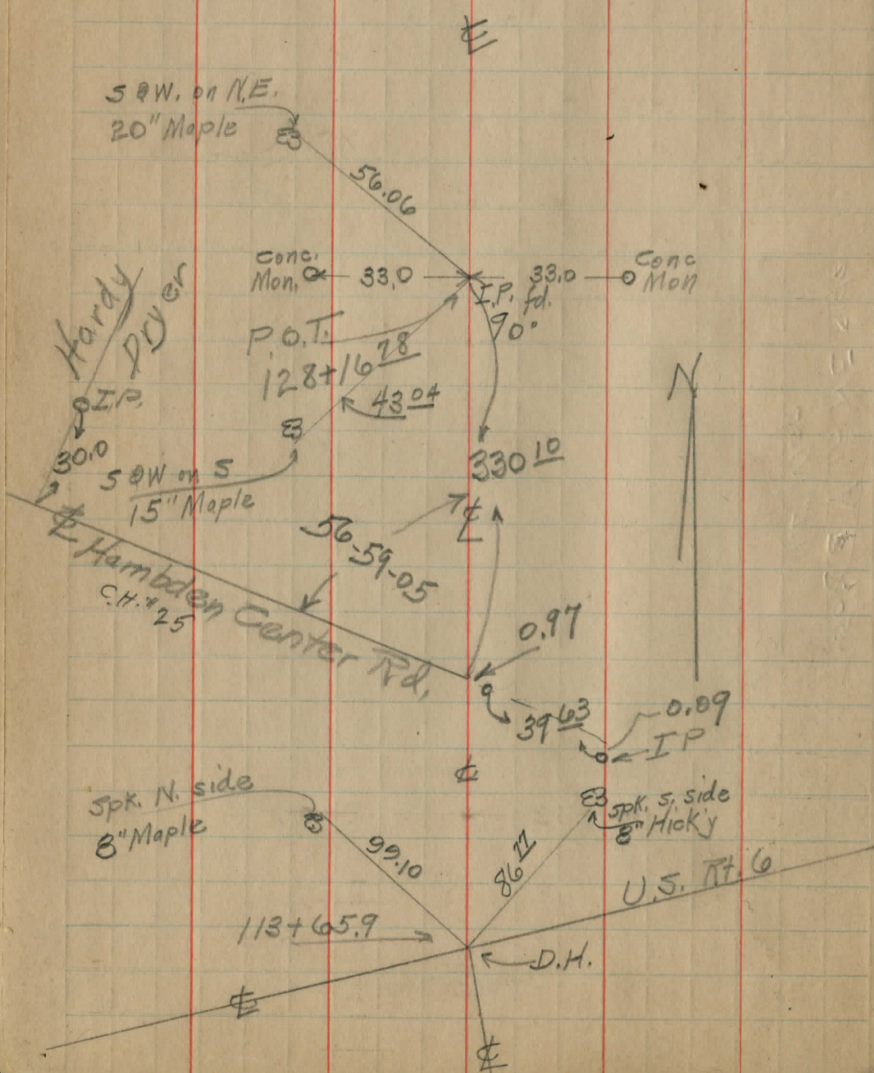 ℄
S @W. on N.E.
20" Maple
56.06
Conc.
Mon.
33.0
33.0
Conc
Mon
I.P. fd.
90°
P.O.T.
128+16 78
43 04
Hardy
Dryer
I.P.
30.0
S @W on S
15" Maple
330 10
℄
N
56-59-05
℄ Hambden Center Rd.
C.H. #25
0.97
39 63
0.09
I P
℄
Spk. N. side
8" Maple
Spk. S. side
8" Hick'y
99.10
86 77
U.S. Rt. 6
113+65.9
D.H.
℄
℄